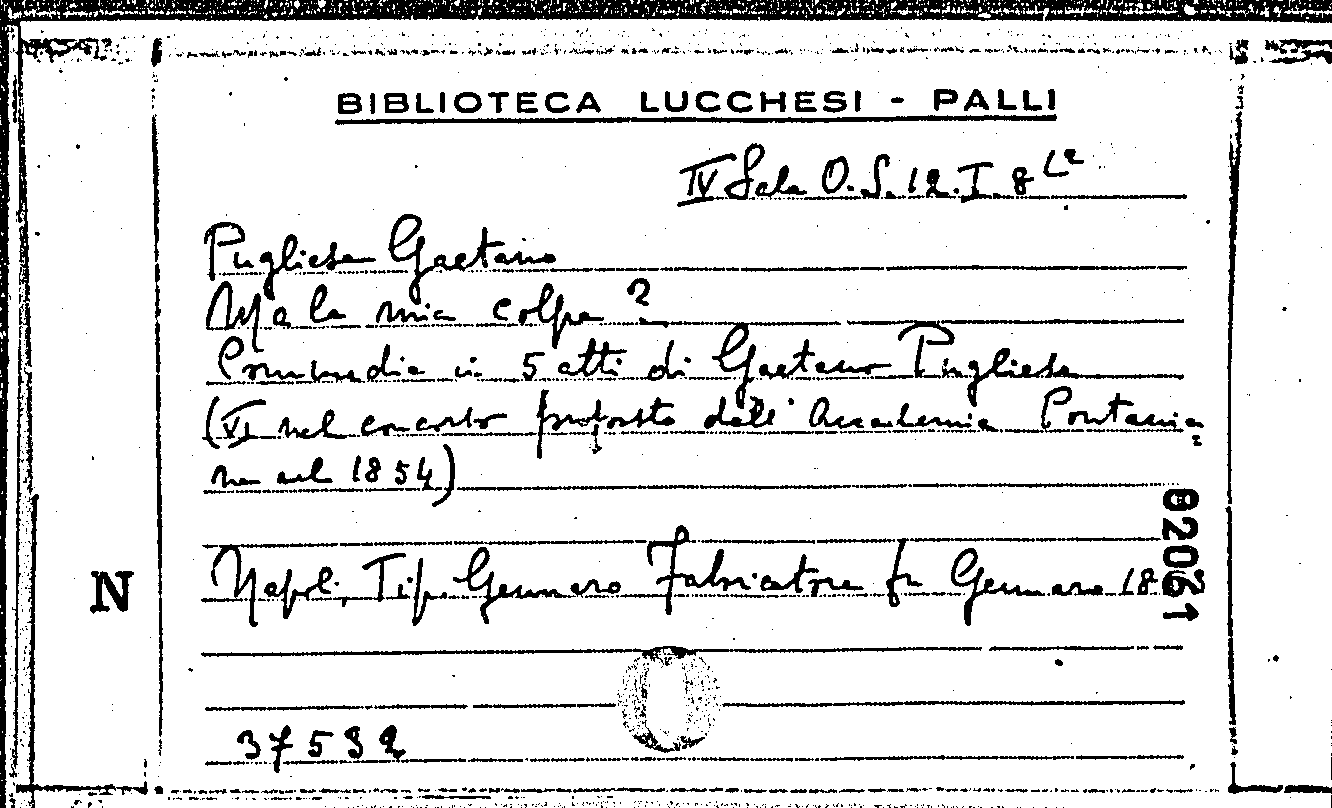 BIBLIOTECA LUCCHESI - PALLI
IV Sala O. S. 12. I. 8
Pugliese Gaetano
Ma la mia colpa?
Commedia in 5 atti di Gaetano Pugliese
(VI nel concorso proposto dall'Accademia Pontania=
na nel 1854)
02061
N
Napoli, Tip. Gennaro Fabricatore fu Gennaro 18
37532